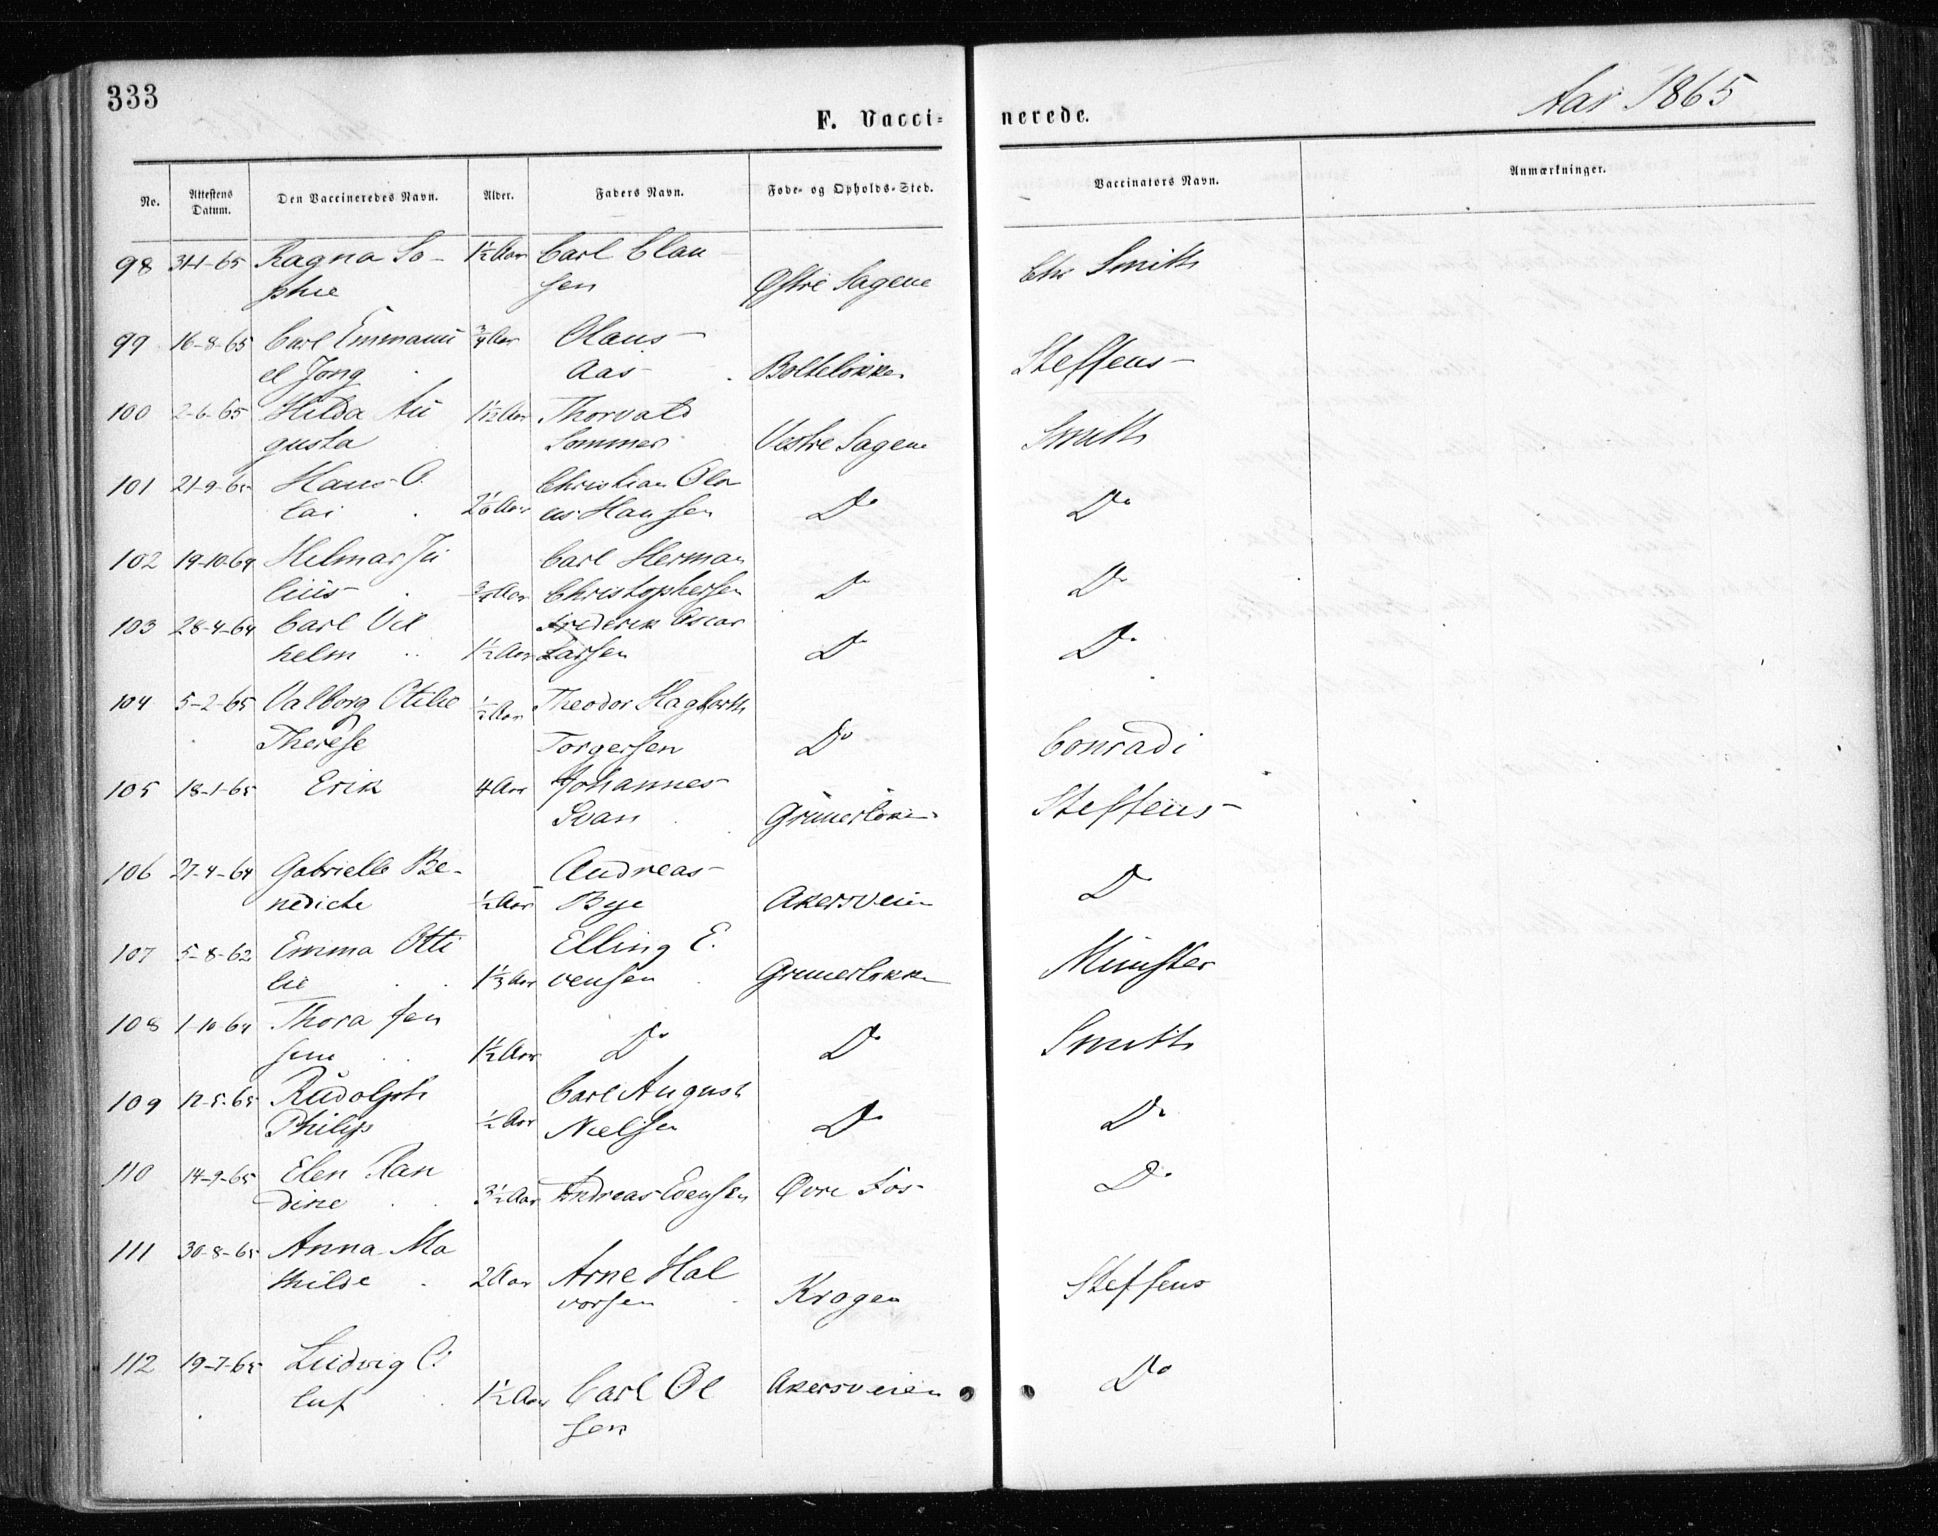 333
F. Vacci=
nerede.
Aar 1865
No.
Attestens
Datum.
Den Vaccineredes Navn.
Alder.
Faders Navn.
Føde- og Opholds-Sted.
Vaccinators Navn.
Anmærkninger.
98 31-1-65 Ragna So- 1½ Aar Carl Clau-
phie sen Østre Sagene Chr Smith
99 16-8-65 Carl Emmanu ¾ Aar Olaus
el Jong Aas Bolteløkken Steffens
100 2-6-65 Hilda Au 1 1/12 Aar Thorvald
gusta Sommer Vestre Sagene Smith
101 21-9-65 Hans O. Christian Ola
lai 2 1/6 Aar us Hansen Do Do
102 19-10-64 Hilmar Ju Carl Herman
lius ¾ Aar Christophersen Do Do
103 28-4-64 Carl Vil Frederik Oscar
helm 1½ Aar Larsen Do Do
104 5-2-65 Valborg Otilie ½ Aar Theodor Hagbarth
Therese Torgersen Do Conradi
105 18-1-65 Erik 4 Aar Johannes
Svan Grünerløkken Steffens
106 27-4-64 Gabrielle Be- Andreas
nedicte ½ Aar Bye Akersveien Do
107 5-8-62 Emma Otti Elling E.
lie 1⅓ Aar vensen Grünerløkken Münster
108 1-10-64 Thora Jen
sine 1½ Aar Do Do Smith
109 12-5-65 Rudolph Carl August
Philip ½ Aar Nielsen Do Do
110 14-9-65 Elen Ran
dine 3½ Aar Andreas Evensen Øvre Fos Do
111 30-8-65 Anna Ma
thilde 2 Aar Arne Hal
vorsen Krogen Steffens
112 19-7-65 Ludvig O
luf 1½ Aar Carl Ol Akersveien Do
sen